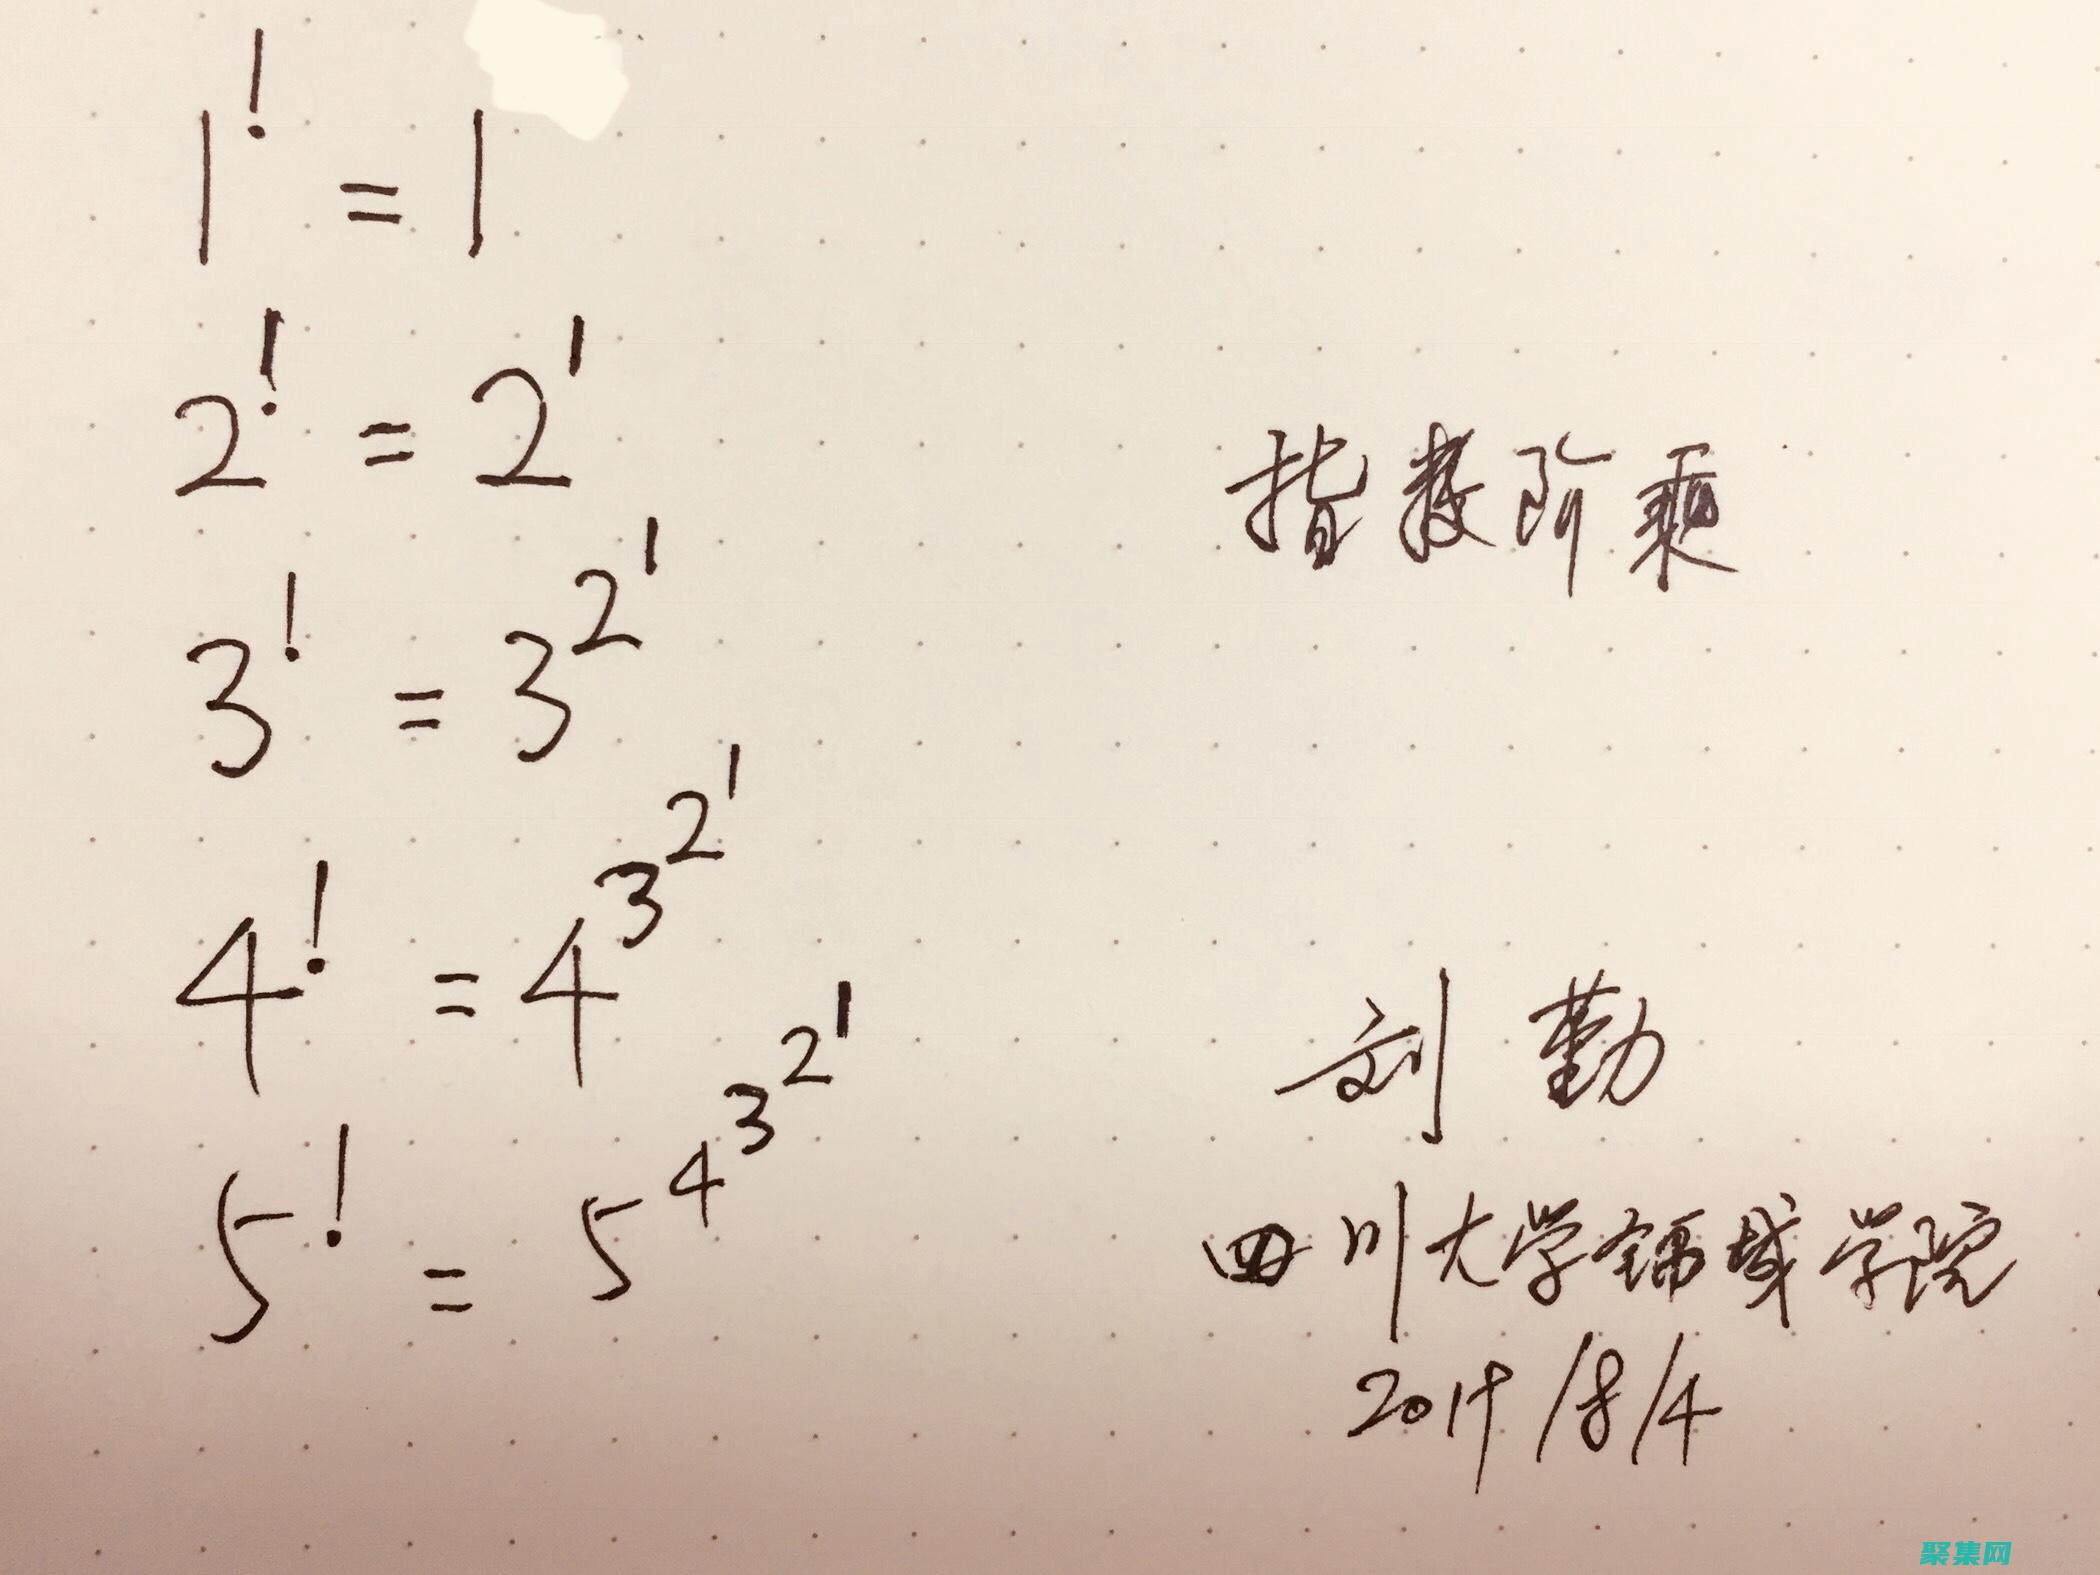 1^! = 1
2^! = 2^1
指数阶乘
3^! = 3^2^1
4^! = 4^3^2^1
刘勤
5^! = 5^4^3^2^1
四川大学锦城学院
2019/8/4
聚集网